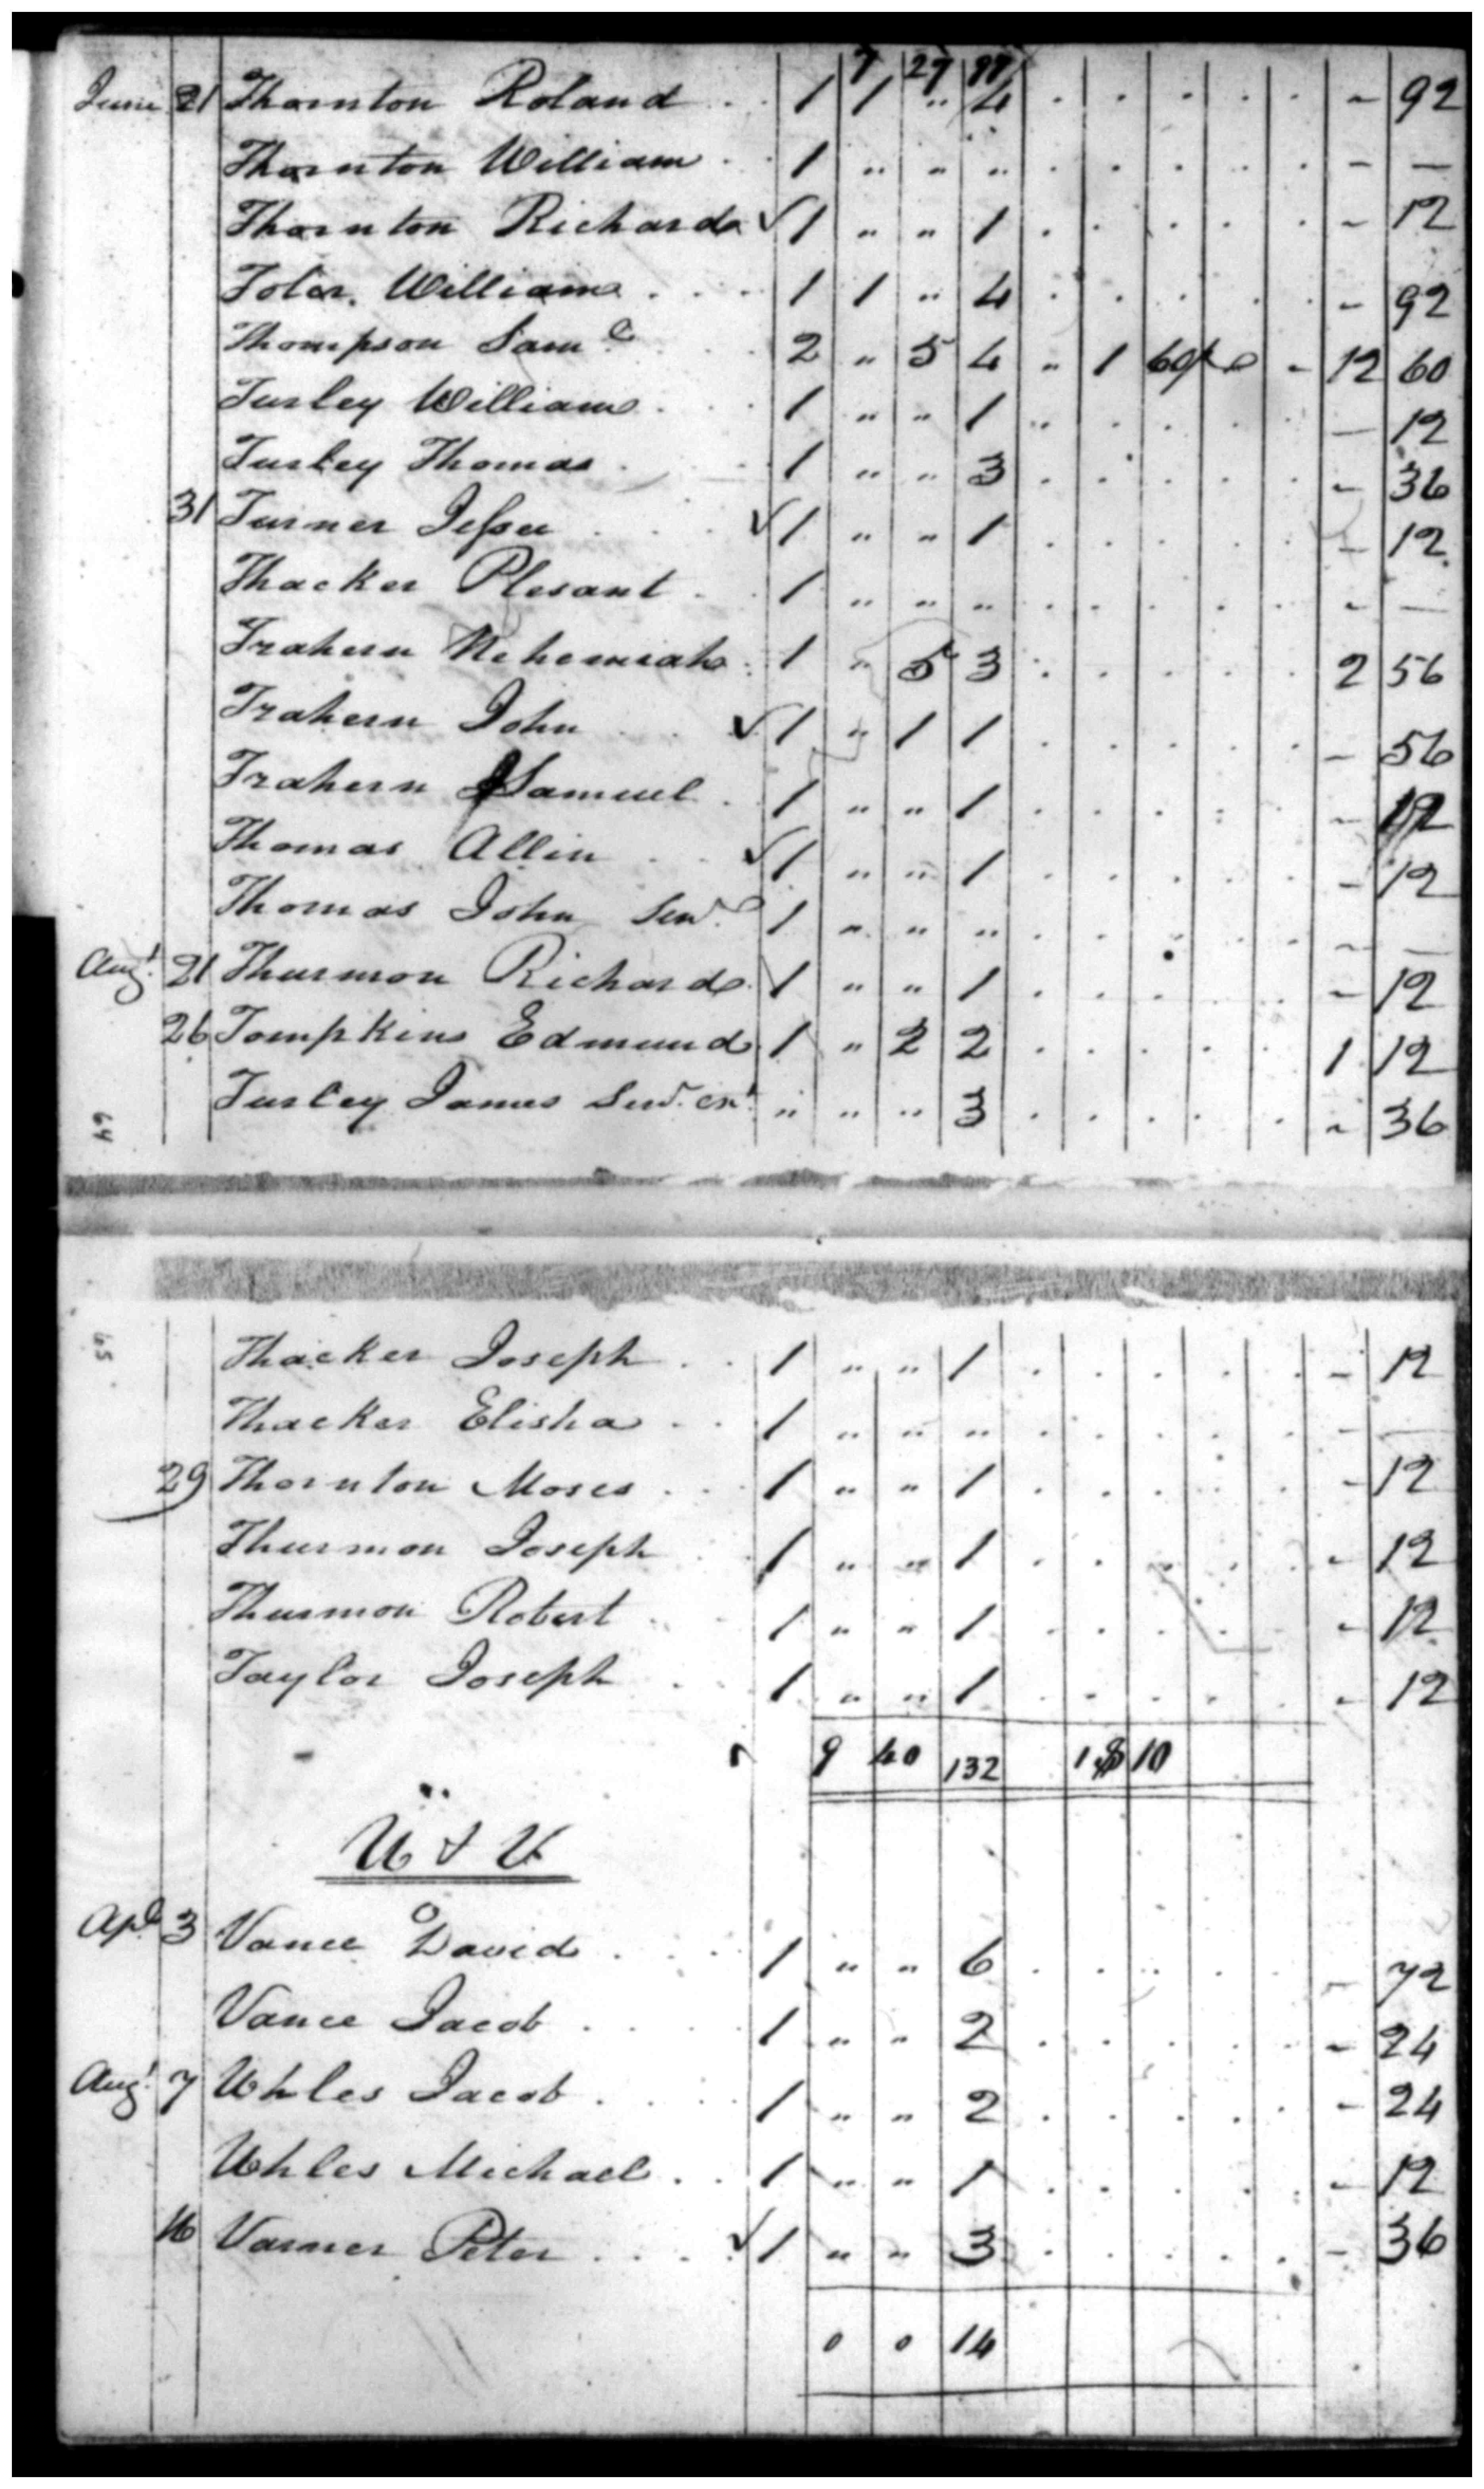 7 27 99
June 21 Thornton Roland . . 1 1 " 4 . . . . . - 92
Thornton William . . 1 " " " . . . . . - —
Thornton Richard ✓ 1 " " 1 . . . . . - 12
Toler William . . . 1 1 " 4 . . . . . - 92
Thompson Saml . . . 2 " 5 4 " 1 - 12 60
Turley William . . . 1 " " 1 . . . . . — 12
Turley Thomas . . . 1 " " 3 . . . . . - 36
31 Turner Jesse . . . ✓ 1 " " 1 . . . . . - 12
Thacker Plesant . . 1 " " " . . . . . - —
Trahern Nehemiah . 1 " 5 3 . . . . . 2 56
Trahern John . . ✓ 1 " 1 1 . . . . . — 56
Trahern Samuel . 1 " " 1 . . . . . - 12
Thomas Allin . . ✓ 1 " " 1 . . . . . - 12
Thomas John Senr 1 " " " . . . . . - —
Augt 21 Thurmon Richard 1 " " 1 . . . . . - 12
26 Tompkins Edmund 1 " 2 2 . . . . . 1 12
Turley James Senr. Ext " " " 3 . . . . . - 36
64
65
Thacker Joseph . . 1 " " 1 . . . . . - 12
Thacker Elisha . . 1 " " " . . . . . - —
29 Thornton Moses . . 1 " " 1 . . . . . - 12
Thurmon Joseph . . 1 " " 1 . . . . . - 12
Thurmon Robert . . 1 " " 1 . . . . . - 12
Taylor Joseph . . 1 " " 1 . . . . . - 12
9 40 132 1 $ 10
U & V
Apl 3 Vance David . . . 1 " " 6 . . . . . - 72
Vance Jacob . . . . 1 " " 2 . . . . . - 24
Augt 7 Uhles Jacob . . . . 1 " " 2 . . . . . - 24
Uhles Michael . . 1 " " 1 . . . . . - 12
16 Varner Peter . . . ✓ 1 " " 3 . . . . . - 36
0 0 14